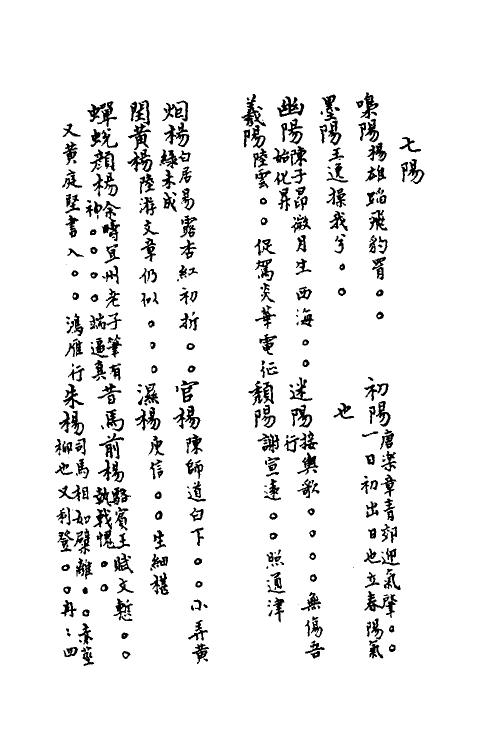 七陽
嘄陽揚雄蹈飛豹罥。。 初陽唐樂章青郊迎氣肇。。一日初出日也立春陽氣
墨陽王逸操我兮。。 也
幽陽陳子昂微月生西海。。始化昇 迷陽接輿歌。。。。無傷吾行
羲陽陸雲。。促駕炎華電征 頹陽謝宣遠。。照通津
烟楊白居易露杏紅初折。。綠未成 官楊陳師道白下。。小弄黃
閏黃楊陸游文章仍似。。。 濕楊庾信。。生細椹
蟬蛻顏楊余時宜州老子筆有神。。。。端逼真 昔馬前楊駱賓王賦文慙。。執戟愧。。
又黃庭堅書入。。鴻雁行 朱楊司馬相如檗離。。赤莖柳也又利登。。冉冉四